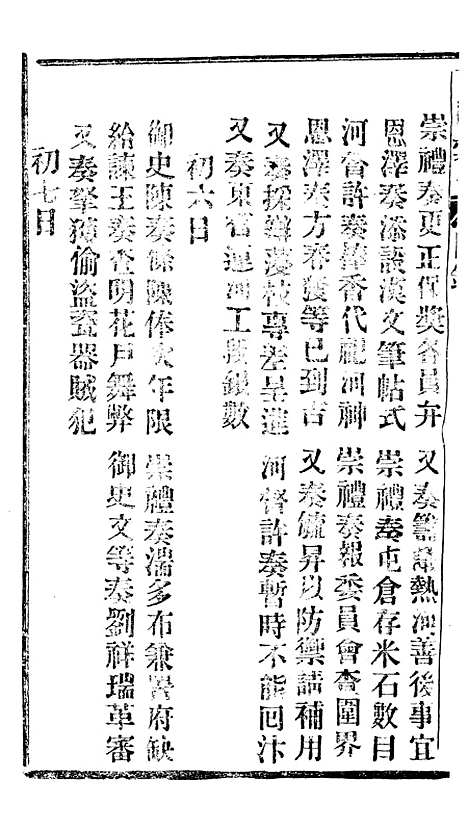 崇禮奏更正保獎各員弁
又奏籌辦熱河善後事宜
恩澤奏添設漢文筆帖式
崇禮奏屯倉存米石數目
河督許奏藏香代祀河神
崇禮奏報委員會查圍界
恩澤奏方春獲等已到吉
又奏毓昇以防禦請補用
又奏採辦菱枝專差呈進
河督許奏暫時不能回汴
又奏東省運河工段銀數
初六日
御史陳奏條陳俸次年限
崇禮奏濡多布兼署府缺
給諫王奏查明花戶舞弊
御史文等奏劉祥瑞革審
又奏拏獲偷盜瓷器賊犯
初七日